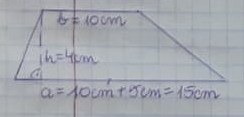 b = 10cm
h = 4cm
a = 10cm + 5cm = 15cm